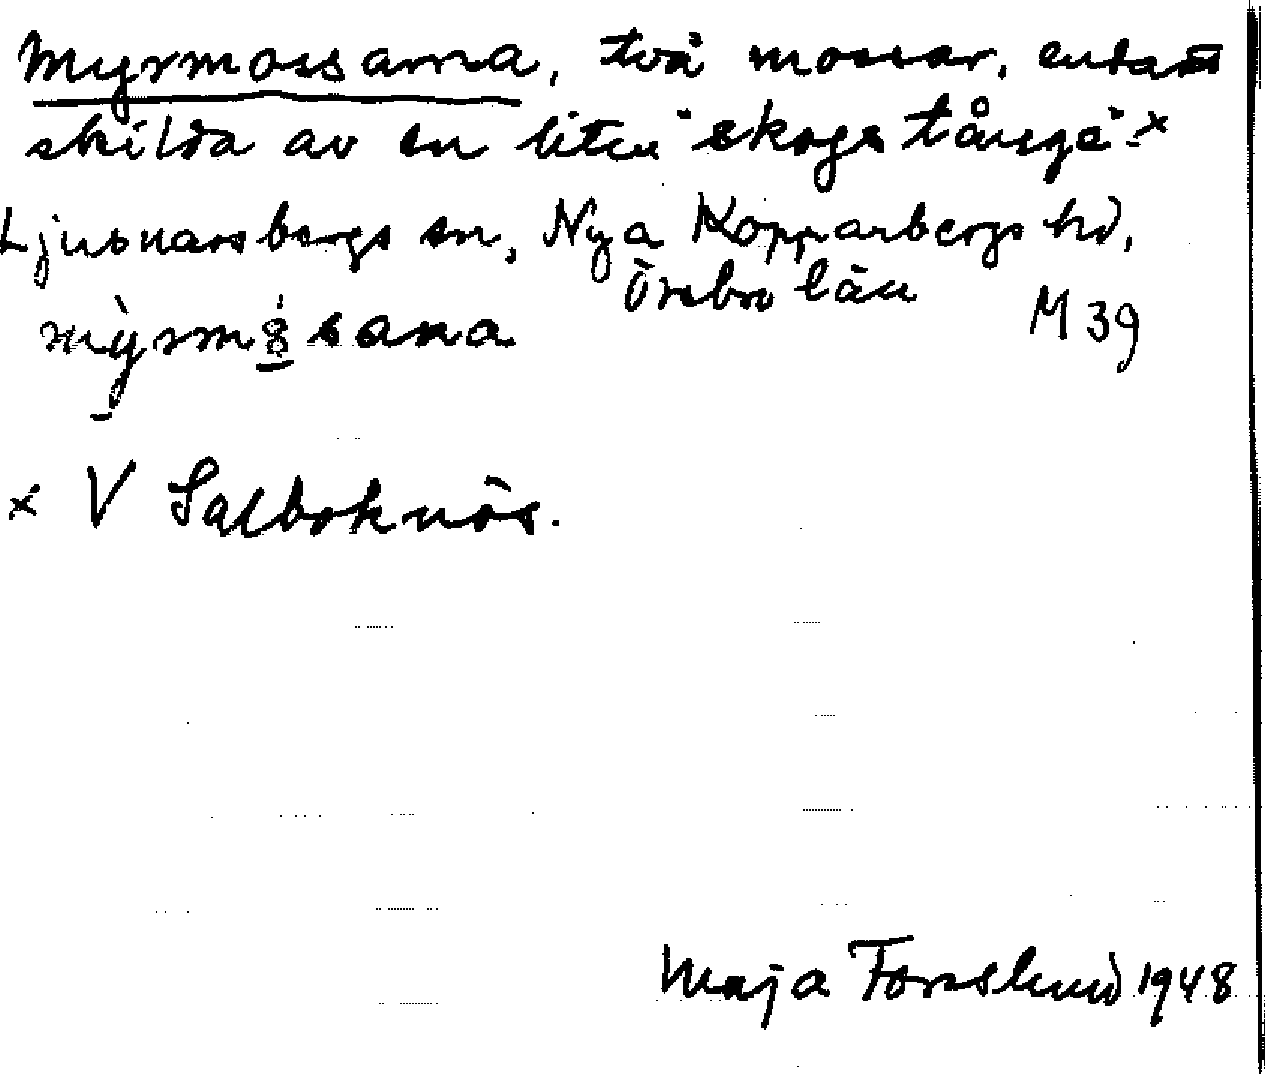 Myrmossarna, två mossar, endast
skilda av en liten "skogstånge" x
Ljusnarsbergs sn, Nya Kopparbergs hd,
Örebro län
M 39
x V Salboknös.
Maja Forslund 1948